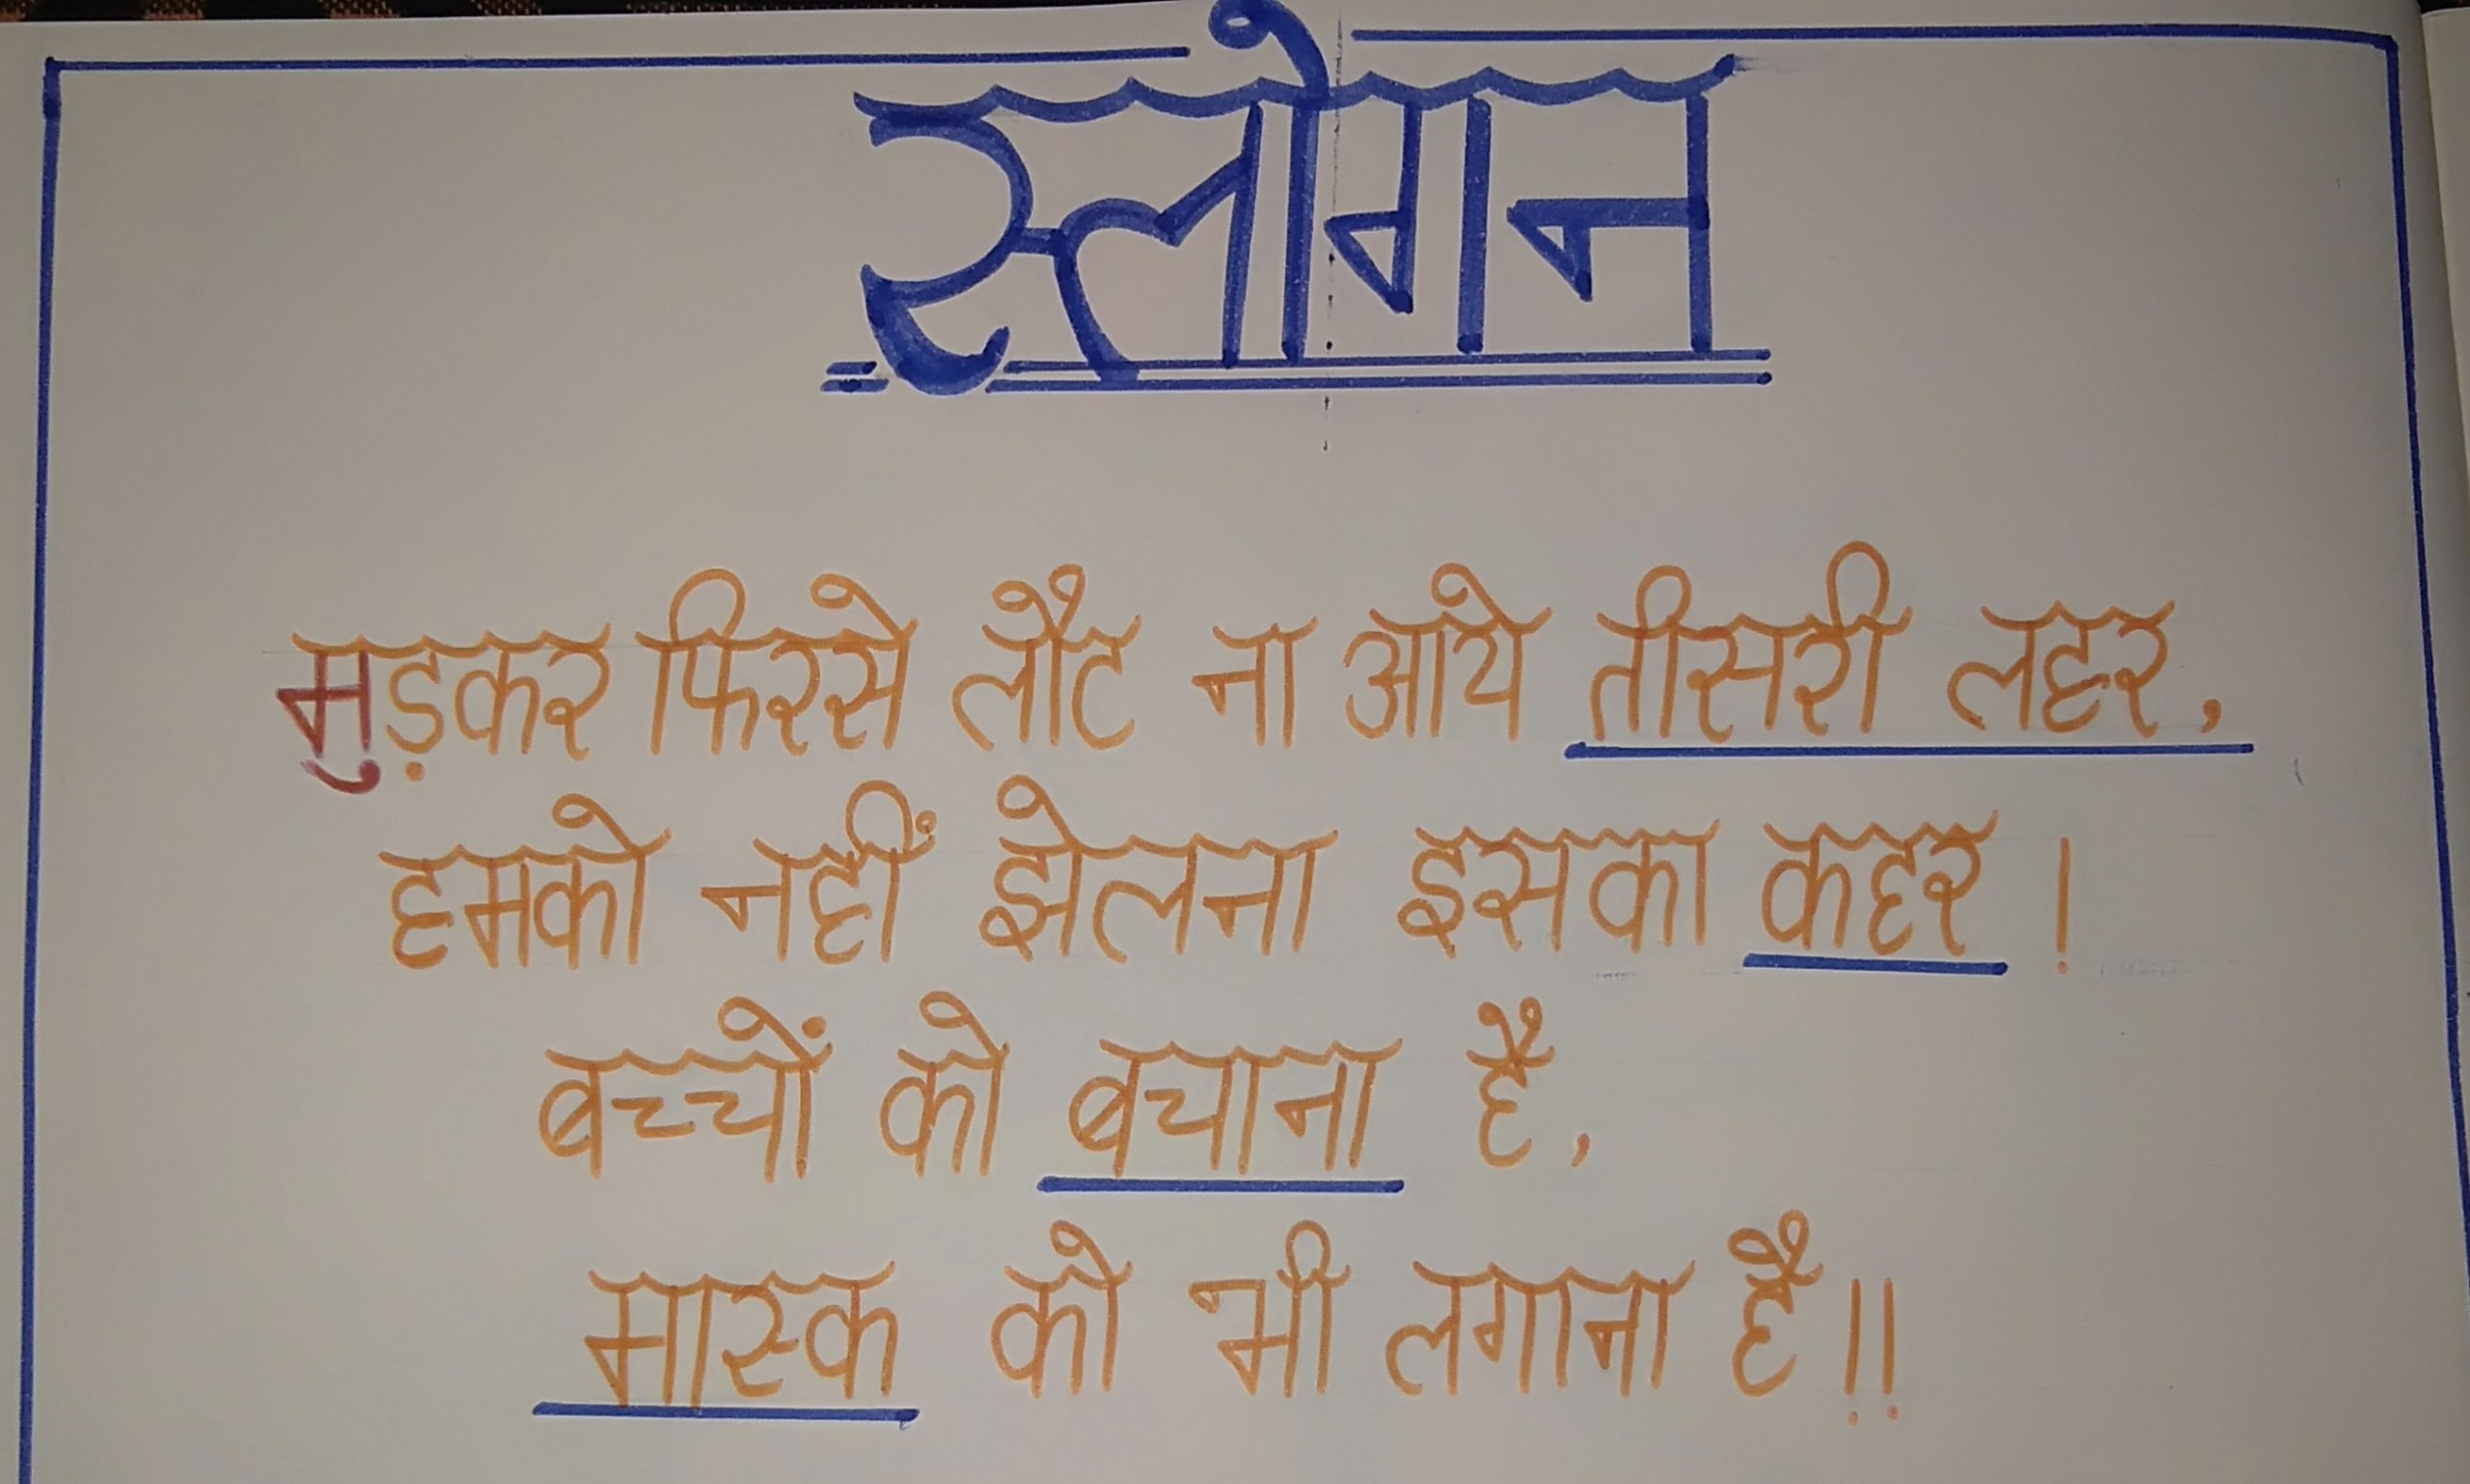 स्लोगन
मुड़कर फिरसे लौट ना आये तीसरी लहर,
हमको नहीं झेलना इसका कहर !
बच्चों को बचाना है,
मास्क को भी लगाना है !!